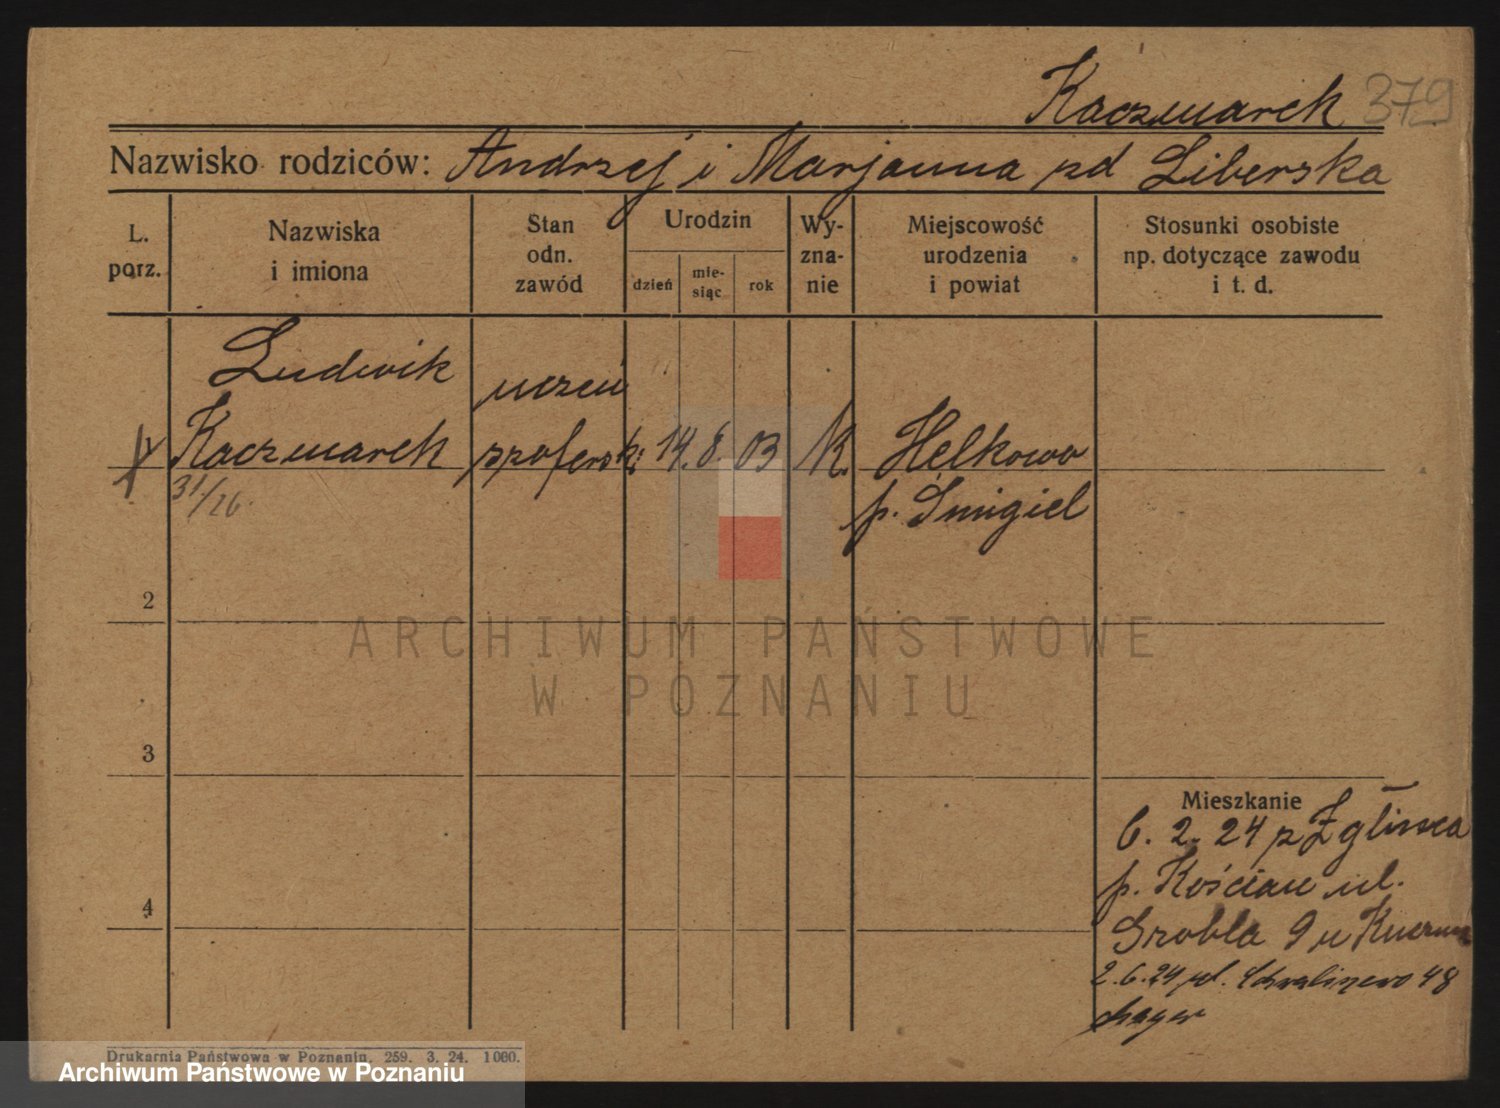 Kaczmarek 379
Nazwisko rodziców: Andrzej i Marjanna zd Liberska
L. porz.
Nazwiska i imiona
Stan odn. zawód
Urodzin
dzień
mie-siąc
rok
Wy-zna-nie
Miejscowość urodzenia i powiat
Stosunki osobiste np. dotyczące zawodu i t. d.
Ludwik uczeń
1 Kaczmarek szofersk: 14. 8. 03 K. Helkowo
31/26. p. Śmigiel
2
3
4
ARCHIWUM PAŃSTWOWE
W POZNANIU
Mieszkanie
6. 2. 24 z
p. Kościan ul.
Grobla 9 u
2. 6. 24 ul. 48
Drukarnia Państwowa w Poznaniu, 259. 3. 24. 1000.
Archiwum Państwowe w Poznaniu